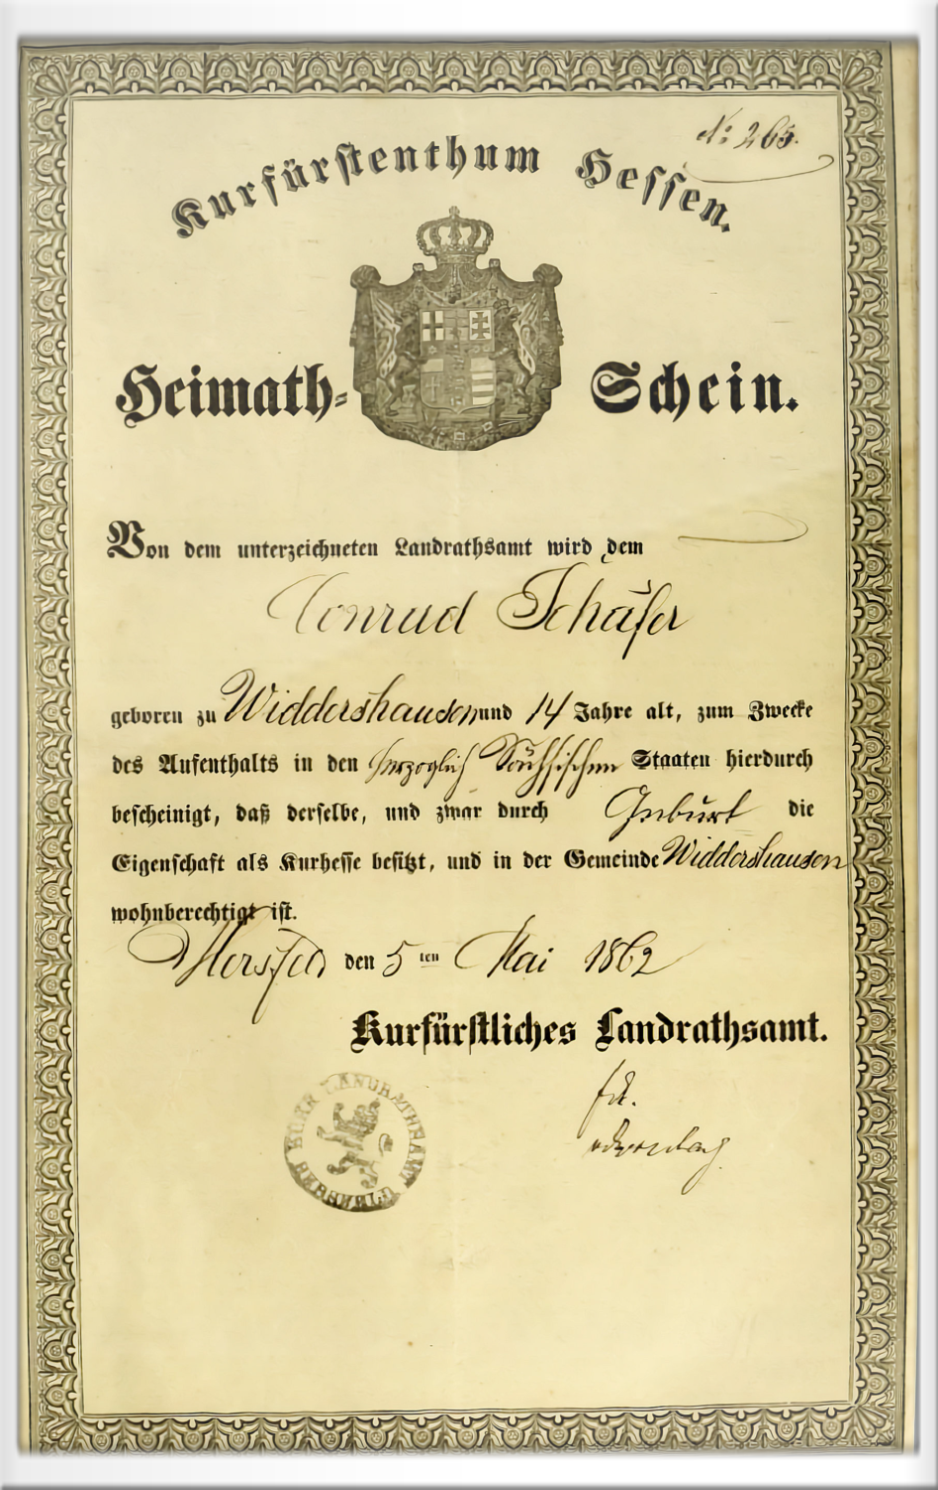 No: 265.
Kurfürstenthum Hessen.
Heimath- Schein.
Von dem unterzeichneten Landrathsamt wird dem
Conrad Schäfer
geboren zu Widdershausen und 14 Jahre alt, zum Zwecke
des Aufenthalts in den Herzoglich Sächsischen Staaten hierdurch
bescheinigt, daß derselbe, und zwar durch Geburt die
Eigenschaft als Kurhesse besitzt, und in der Gemeinde Widdershausen
wohnberechtigt ist.
Hersfeld den 5ten Mai 1862
Kurfürstliches Landrathsamt.
KURF. LANDRATHSAMT HERSFELD